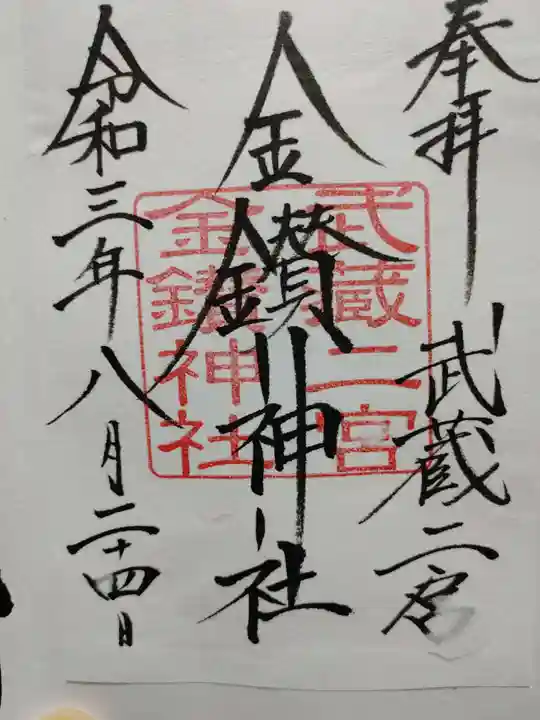 奉拝
武蔵二宮
金鑚神社
令和三年八月二十四日
武蔵二宮
金鑚神社